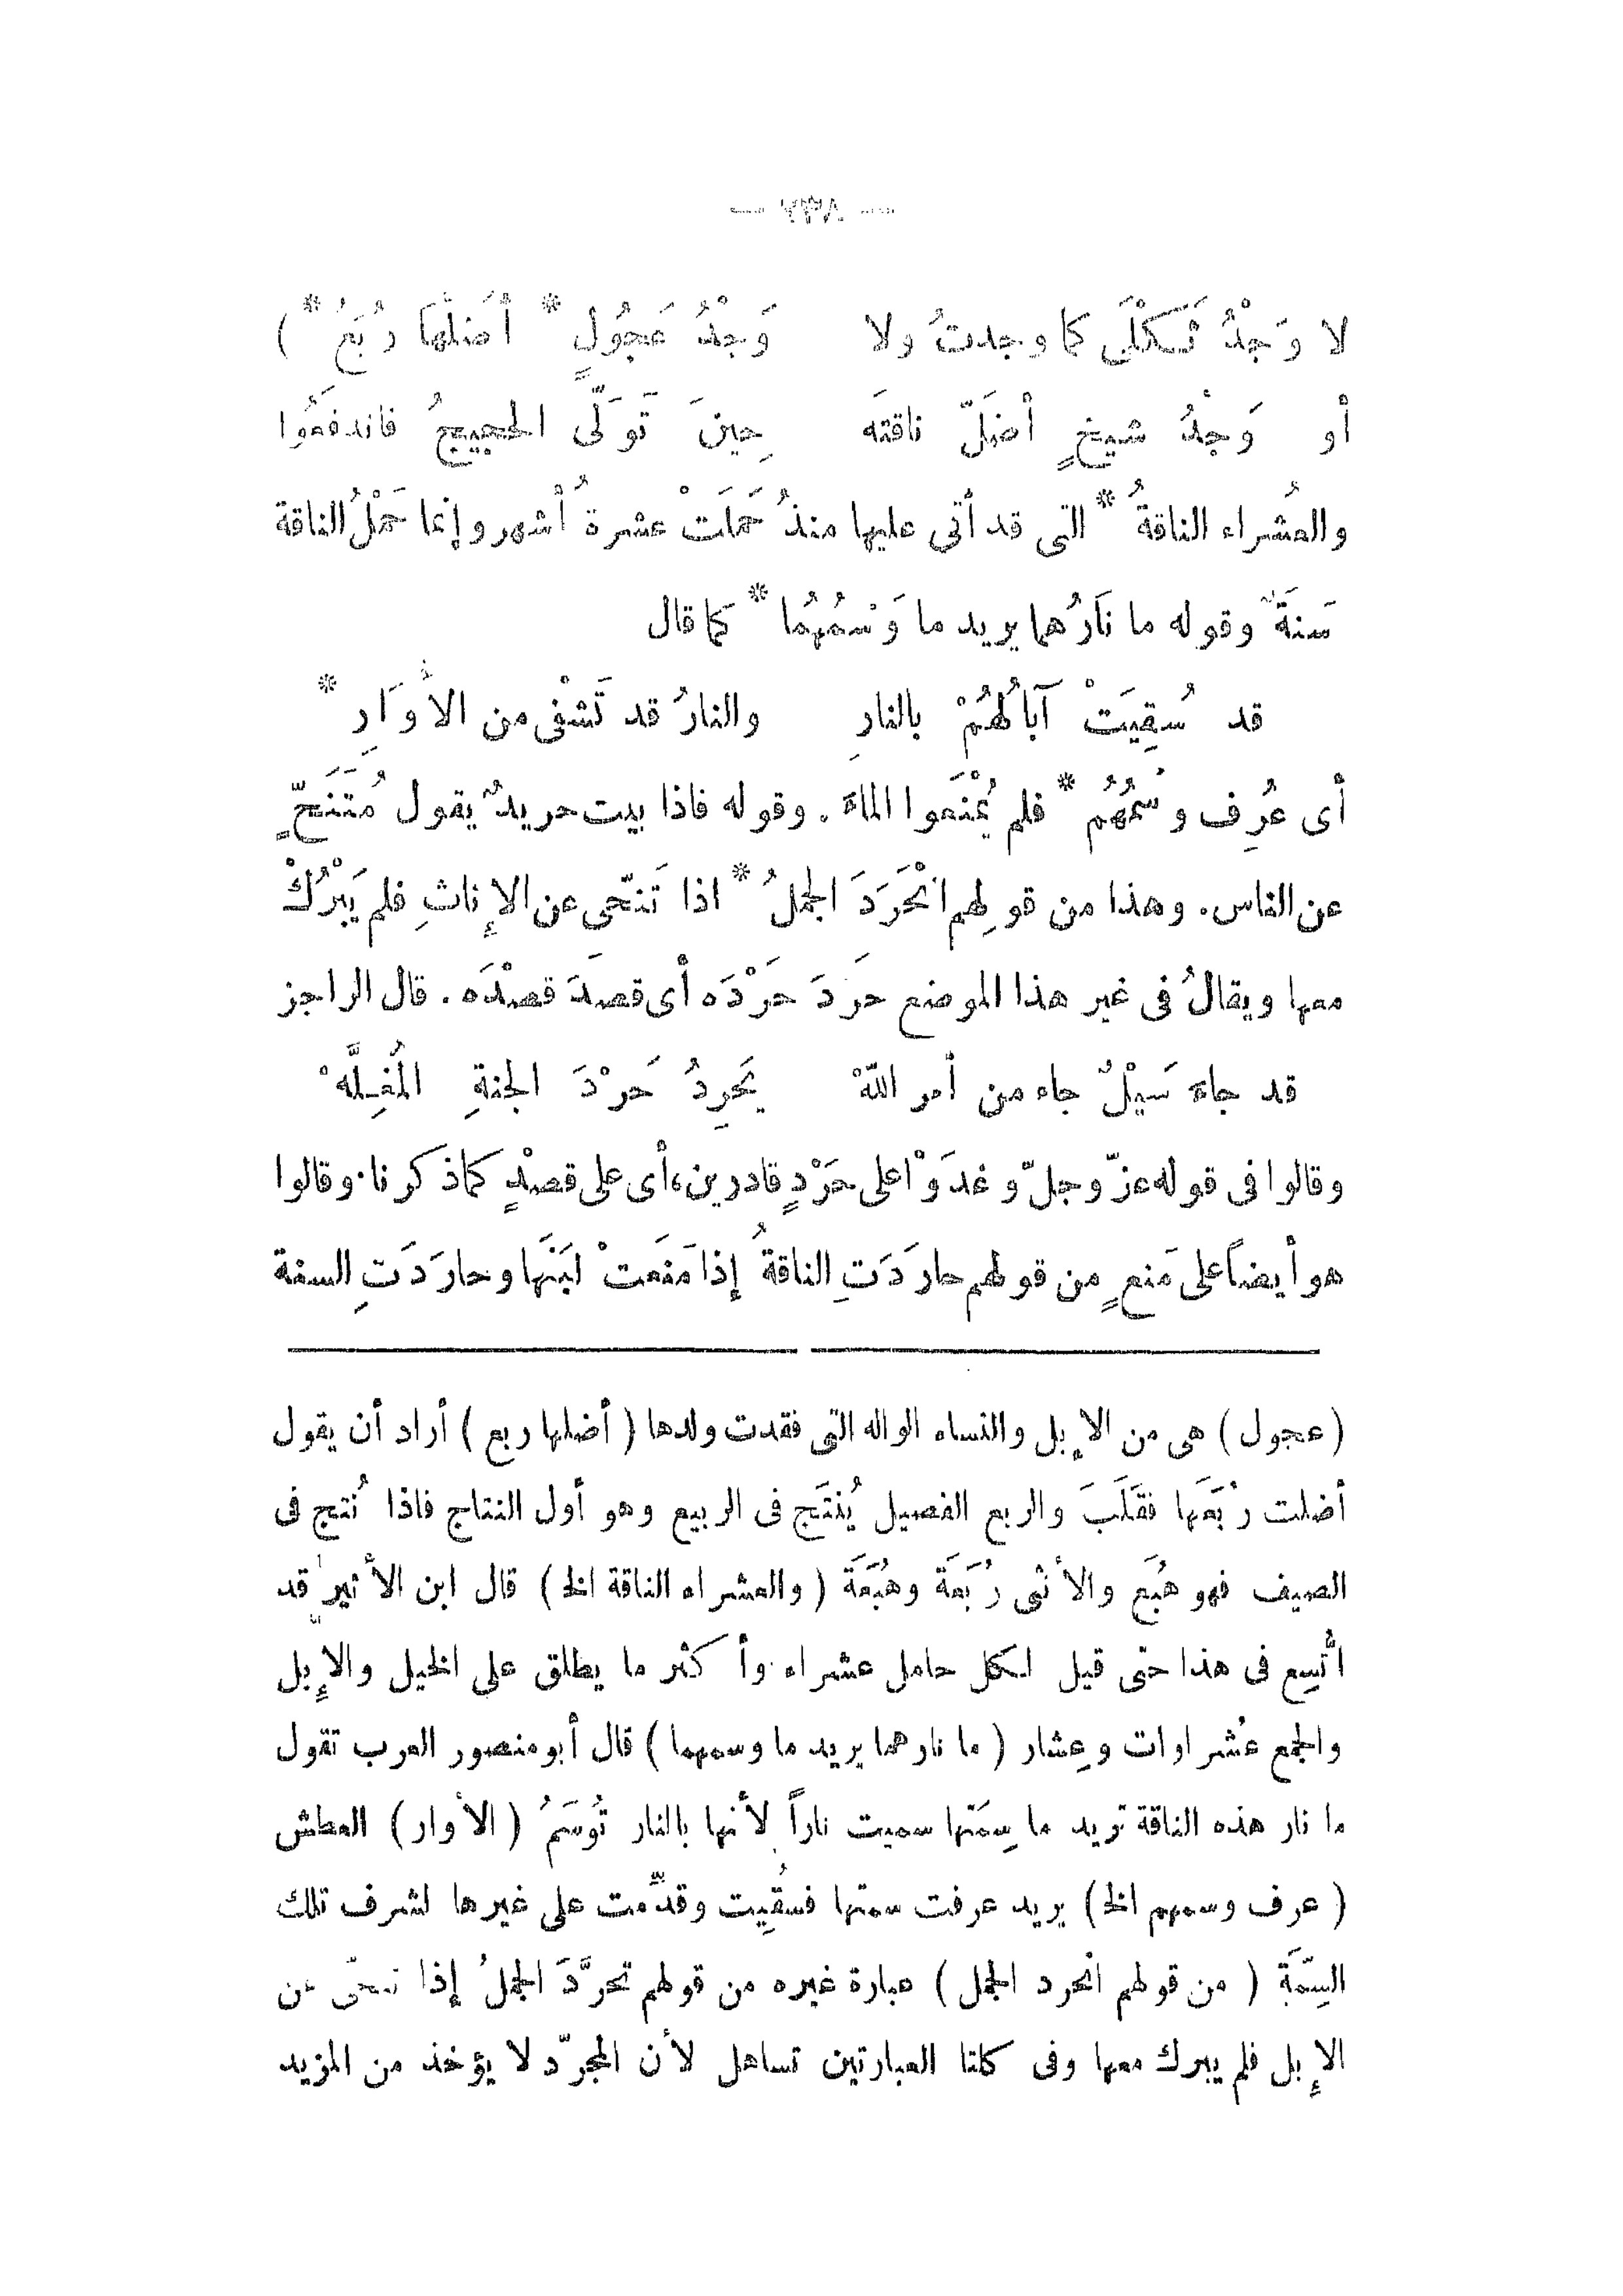 لا وَجْدُ ثَكْلَى كما وجدتُ ولا وَجْدُ عَجُولٍ * أَضَلَّهَا رُبَعُ * )
أو وَجْدُ شيخٍ أضَلّ ناقتَه حِينَ تَوَلّى الحجيجُ فاندفَعُوا
والعُشراء الناقةُ * التى قد أتى عليها منذُ حَمَلَتْ عشرةُ أشهر وإنما حَمْلُ الناقة
سَنةٌ وقوله ما نَارُهما يريد ما وَسْمُهُما * كما قال
قد سُقِيَتْ آبالُهُمْ بالنارِ والنارُ قد تَشْفى من الأُوَارِ *
أى عُرِف وسْمُهُم * فلم يُمْنَعوا الماءَ . وقوله فاذا بيت حريدٌ يقول مُتَنَحّ
عن الناس . وهذا من قولِهم انْحَرَدَ الجملُ * اذا تَنحّى عن الإناثِ فلم يَبْرُكْ
معها ويقالُ فى غير هذا الموضع حَرَدَ حَرْدَه أى قصدَ قصْدَه . قال الراجز
قد جاءَ سَيْلٌ جاء من أمر اللّهْ يَحْرِدُ حَرْدَ الجنةِ المُغِلَّهْ
وقالوا فى قوله عزّ وجلّ وغدَوْا على حَرْدٍ قادرين، أى على قصْدٍ كما ذكرنا . وقالوا
هو أيضاً على مَنعٍ من قولهم حارَدَتِ الناقةُ إذا مَنَعتْ لَبَنَها وحارَدَتِ السنة
( عجول ) هى من الإبل والنساء الواله التى فقدت ولدها ( أضلها ربع ) أراد أن يقول
أضلت رُبَعَها فقَلَبَ والربع الفصيل يُنْتَج فى الربيع وهو أول النتاج فاذا نُتج فى
الصيف فهو هُبَع والأنثى رُبَعَة وهُبَعَة ( والعشراء الناقة الخ ) قال ابن الأثير قد
اتُّسِع فى هذا حتى قيل لكل حامل عشراء وأكثر ما يطلق على الخيل والإبل
والجمع عُشراوات وعِشار ( ما نارهما يريد ما وسمهما ) قال أبو منصور العرب تقول
ما نار هذه الناقة تريد ما سِمَتها سميت ناراً لأنها بالنار تُوسَمُ ( الأوار ) العطش
( عرف وسمهم الخ ) يريد عرفت سمتها فسُقِيت وقدِّمت على غيرها لشرف تلك
السِّمَة ( من قولهم انحرد الجمل ) عبارة غيره من قولهم تحرَّدَ الجملُ إذا تنحّى عن
الإبل فلم يبرك معها وفى كلتا العبارتين تساهل لأن المجرّد لا يؤخذ من المزيد